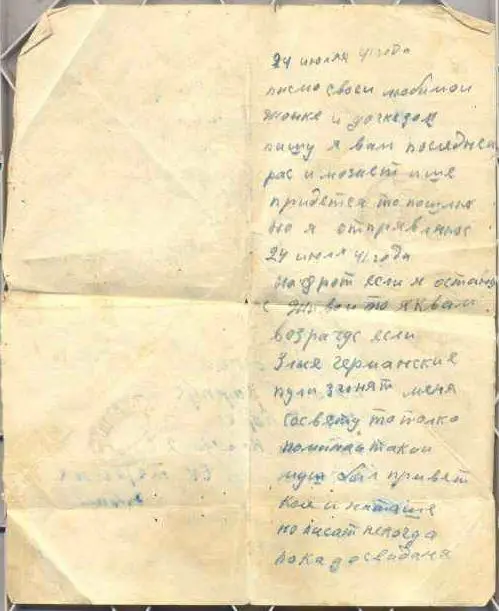 24 июля 41 года
писмо своеи любимои
жонке и дочкедом
пишу я вам последнеа
рас иможыт ише
придетса то пошлю
но я отпрявляюс
24 июля 41 года
на фрот если я остану
с живои то я к вам
возращус если
Злые германские
пули згонят меня
Со свету то толко
поминаи такои
муш был привет
Кое и наташе
но писат некогда
пока до свиданя